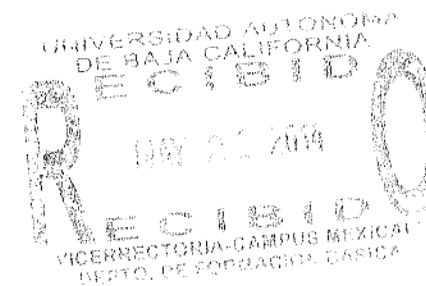 UNIVERSIDAD AUTONOMA
DE BAJA CALIFORNIA
RECIBIDO
RECIBIDO
VICERRECTORIA-CAMPUS MEXICALI
DEPTO. DE FORMACION BASICA